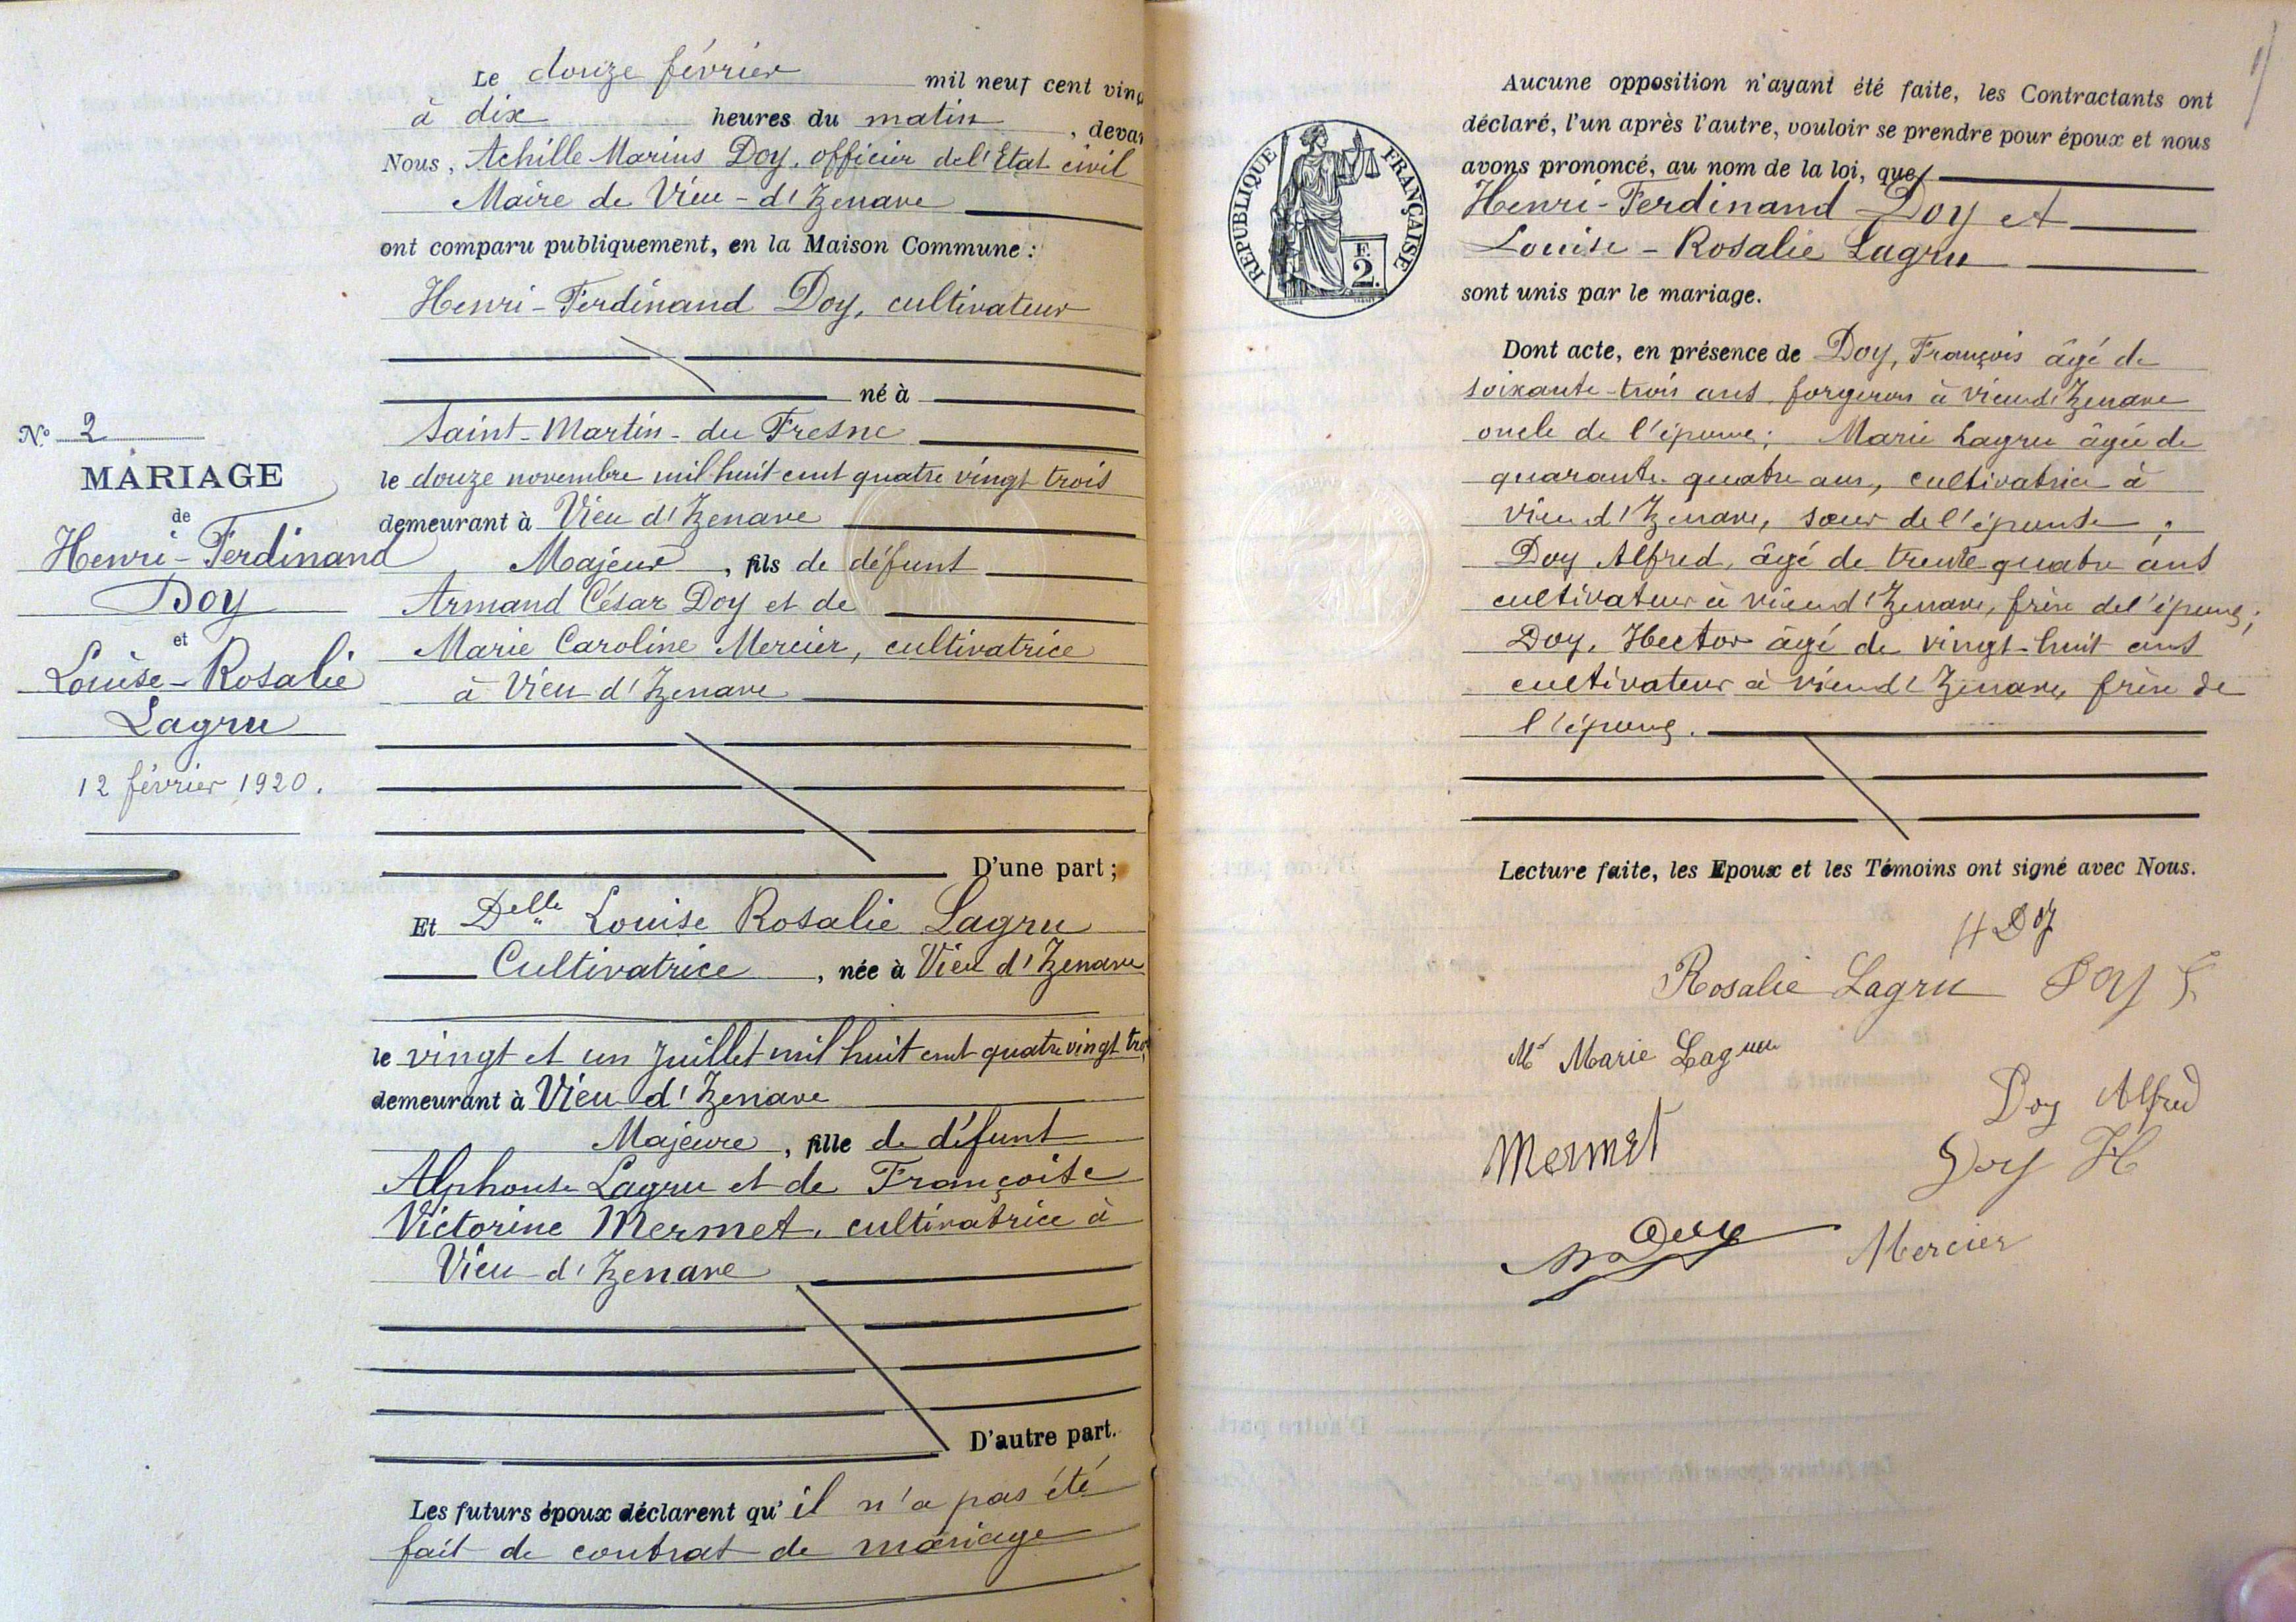 Le douze février mil neuf cent ving
à dix heures du matin, devan
Nous, Achille Marius Doy, officier de l'Etat civil
Maire de Vieu-d'Izenave
ont comparu publiquement, en la Maison Commune :
Henri-Ferdinand Doy, cultivateur
né à
Saint-Martin-du Fresne
le douze novembre mil huit cent quatre vingt trois
demeurant à Vieu d'Izenave
Majeur, fils de défunt
Armand César Doy et de
Marie Caroline Mercier, cultivatrice
à Vieu d'Izenave
D'une part ;
Et Delle Louise Rosalie Lagru
Cultivatrice, née à Vieu d'Izenave
le vingt et un Juillet mil huit cent quatre vingt tro
demeurant à Vieu d'Izenave
Majeure, fille de défunt
Alphonse Lagru et de Françoise
Victorine Mermet, cultivatrice à
Vieu d'Izenave
D'autre part.
Les futurs époux déclarent qu'il n'a pas été
fait de contrat de mariage
N° 2
MARIAGE
de
Henri-Ferdinand
Doy
et
Louise-Rosalie
Lagru
12 février 1920.
Aucune opposition n'ayant été faite, les Contractants ont
déclaré, l'un après l'autre, vouloir se prendre pour époux et nous
avons prononcé, au nom de la loi, que
Henri-Ferdinand Doy et
Louise-Rosalie Lagru
sont unis par le mariage.
RÉPUBLIQUE FRANÇAISE
F.
2.
Dont acte, en présence de Doy, François âgé de
soixante-trois ans, forgeron à Vieu d'Izenave
oncle de l'époux ; Marie Lagru âgée de
quarante-quatre ans, cultivatrice à
Vieu d'Izenave, sœur de l'épouse ;
Doy Alfred, âgé de trente quatre ans
cultivateur à Vieu d'Izenave, frère de l'époux ;
Doy, Hector âgé de vingt-huit ans
cultivateur à Vieu d'Izenave frère de
l'époux.
Lecture faite, les Epoux et les Témoins ont signé avec Nous.
H Doy
Rosalie Lagru Doy F
Marie Lagru
Doy Alfred
Mermet
Doy H
Doy
Mercier